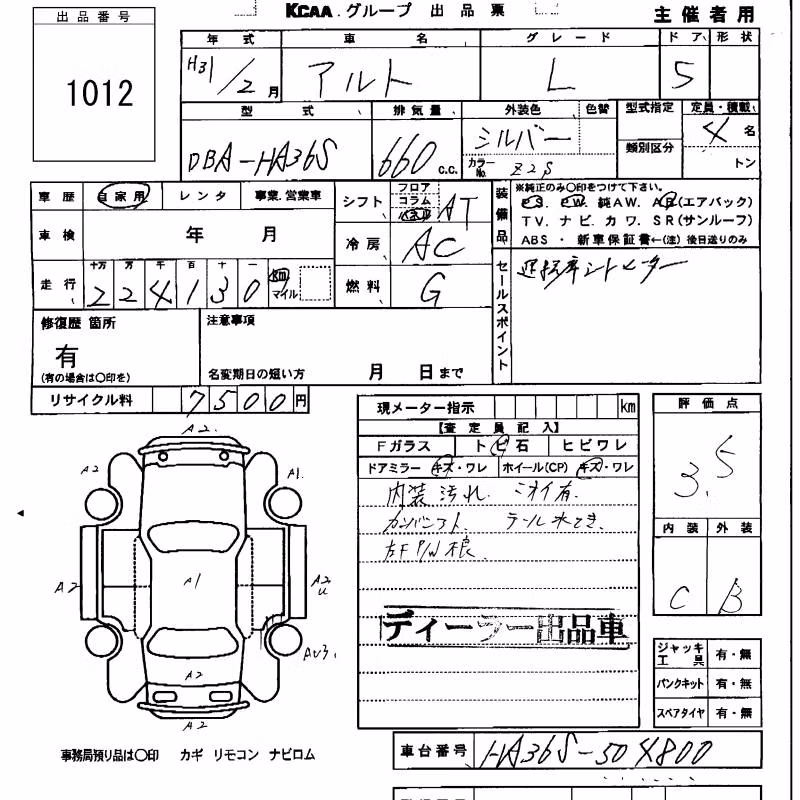 KCAA.グループ 出品票 主催者用
出品番号
1012
年式 車名 グレード ドア 形状
H31/2月 アルト L 5
型式 排気量 外装色 色替 型式指定 定員・積載
DBA-HA36S 660 c.c. シルバー 4名
カラーNo. Z2S 類別区分 トン
車歴 自家用 レンタ 事業.営業車
シフト フロア コラム AT
装備品 ※純正のみ○印をつけて下さい。
PS. PW. 純AW. AB(エアバック)
TV. ナビ. カワ. SR(サンルーフ)
ABS・新車保証書←(注)後日送りのみ
車検 年 月
冷房 AC
走行 十万 万 千 百 十 一
224130 km マイル
燃料 G
セールスポイント
運転席シートヒーター
修復歴 箇所
有
(有の場合は○印を)
注意事項
名変期日の短い方 月 日まで
リサイクル料 7500円
現メーター指示 km
【査定員記入】
Fガラス トビ石 ヒビワレ
ドアミラー キズ・ワレ ホイール(CP) キズ・ワレ
内装汚れ. ニオイ有.
テール水てき.
左F P/W 根.
ディーラー出品車
評価点
3.5
内装 外装
C B
ジャッキ工具 有・無
パンクキット 有・無
スペアタイヤ 有・無
A2.
A2
A1.
A2
A1
A2
U
AU3.
A2
A2
事務局預り品は○印 カギ リモコン ナビロム
車台番号 HA36S-504800